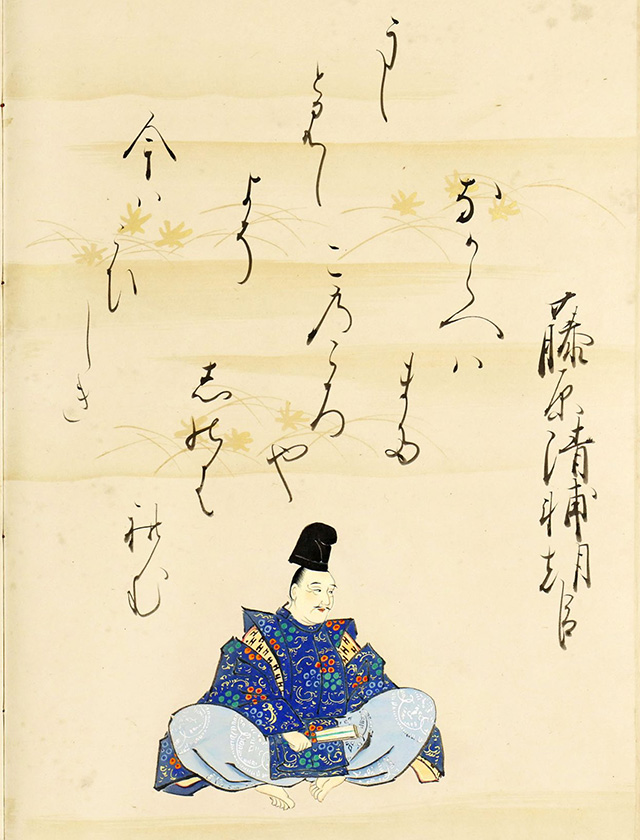 藤原清輔朝臣
なからへハ
また
このころ
や
しのは
れむ
うし
とみし
よそ
今ハこひ
しき